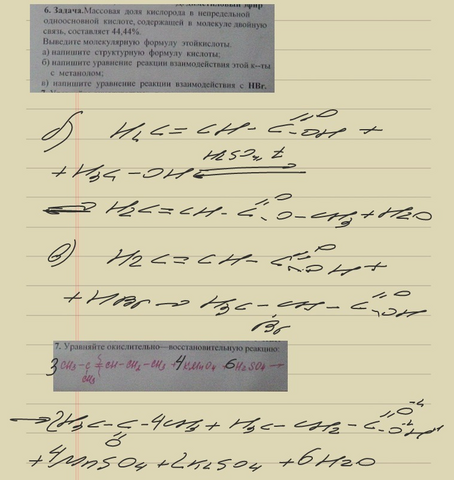 6. Задача. Массовая доля кислорода в непредельной
одноосновной кислоте, содержащей в молекуле двойную
связь, составляет 44,44%.
Выведите молекулярную формулу этой кислоты.
а) напишите структурную формулу кислоты;
б) напишите уравнение реакции взаимодействия этой к--ты
с метанолом;
в) напишите уравнение реакции взаимодействия с HBr.
б) H2C=CH-C=O-OH +
H2SO4, t
+ H3C-OH
H2C=CH-C=O-O-CH3+H2O
в) H2C=CH-C=O-OH+
+HBr→ H3C-CH-C=O-OH
Br
7. Уравняйте окислительно—восстановительную реакцию:
3CH3-C=CH-CH2-CH3 +4KMnO4 +6H2SO4 →
CH3
+4MnSO4+2K2SO4 +6H2O